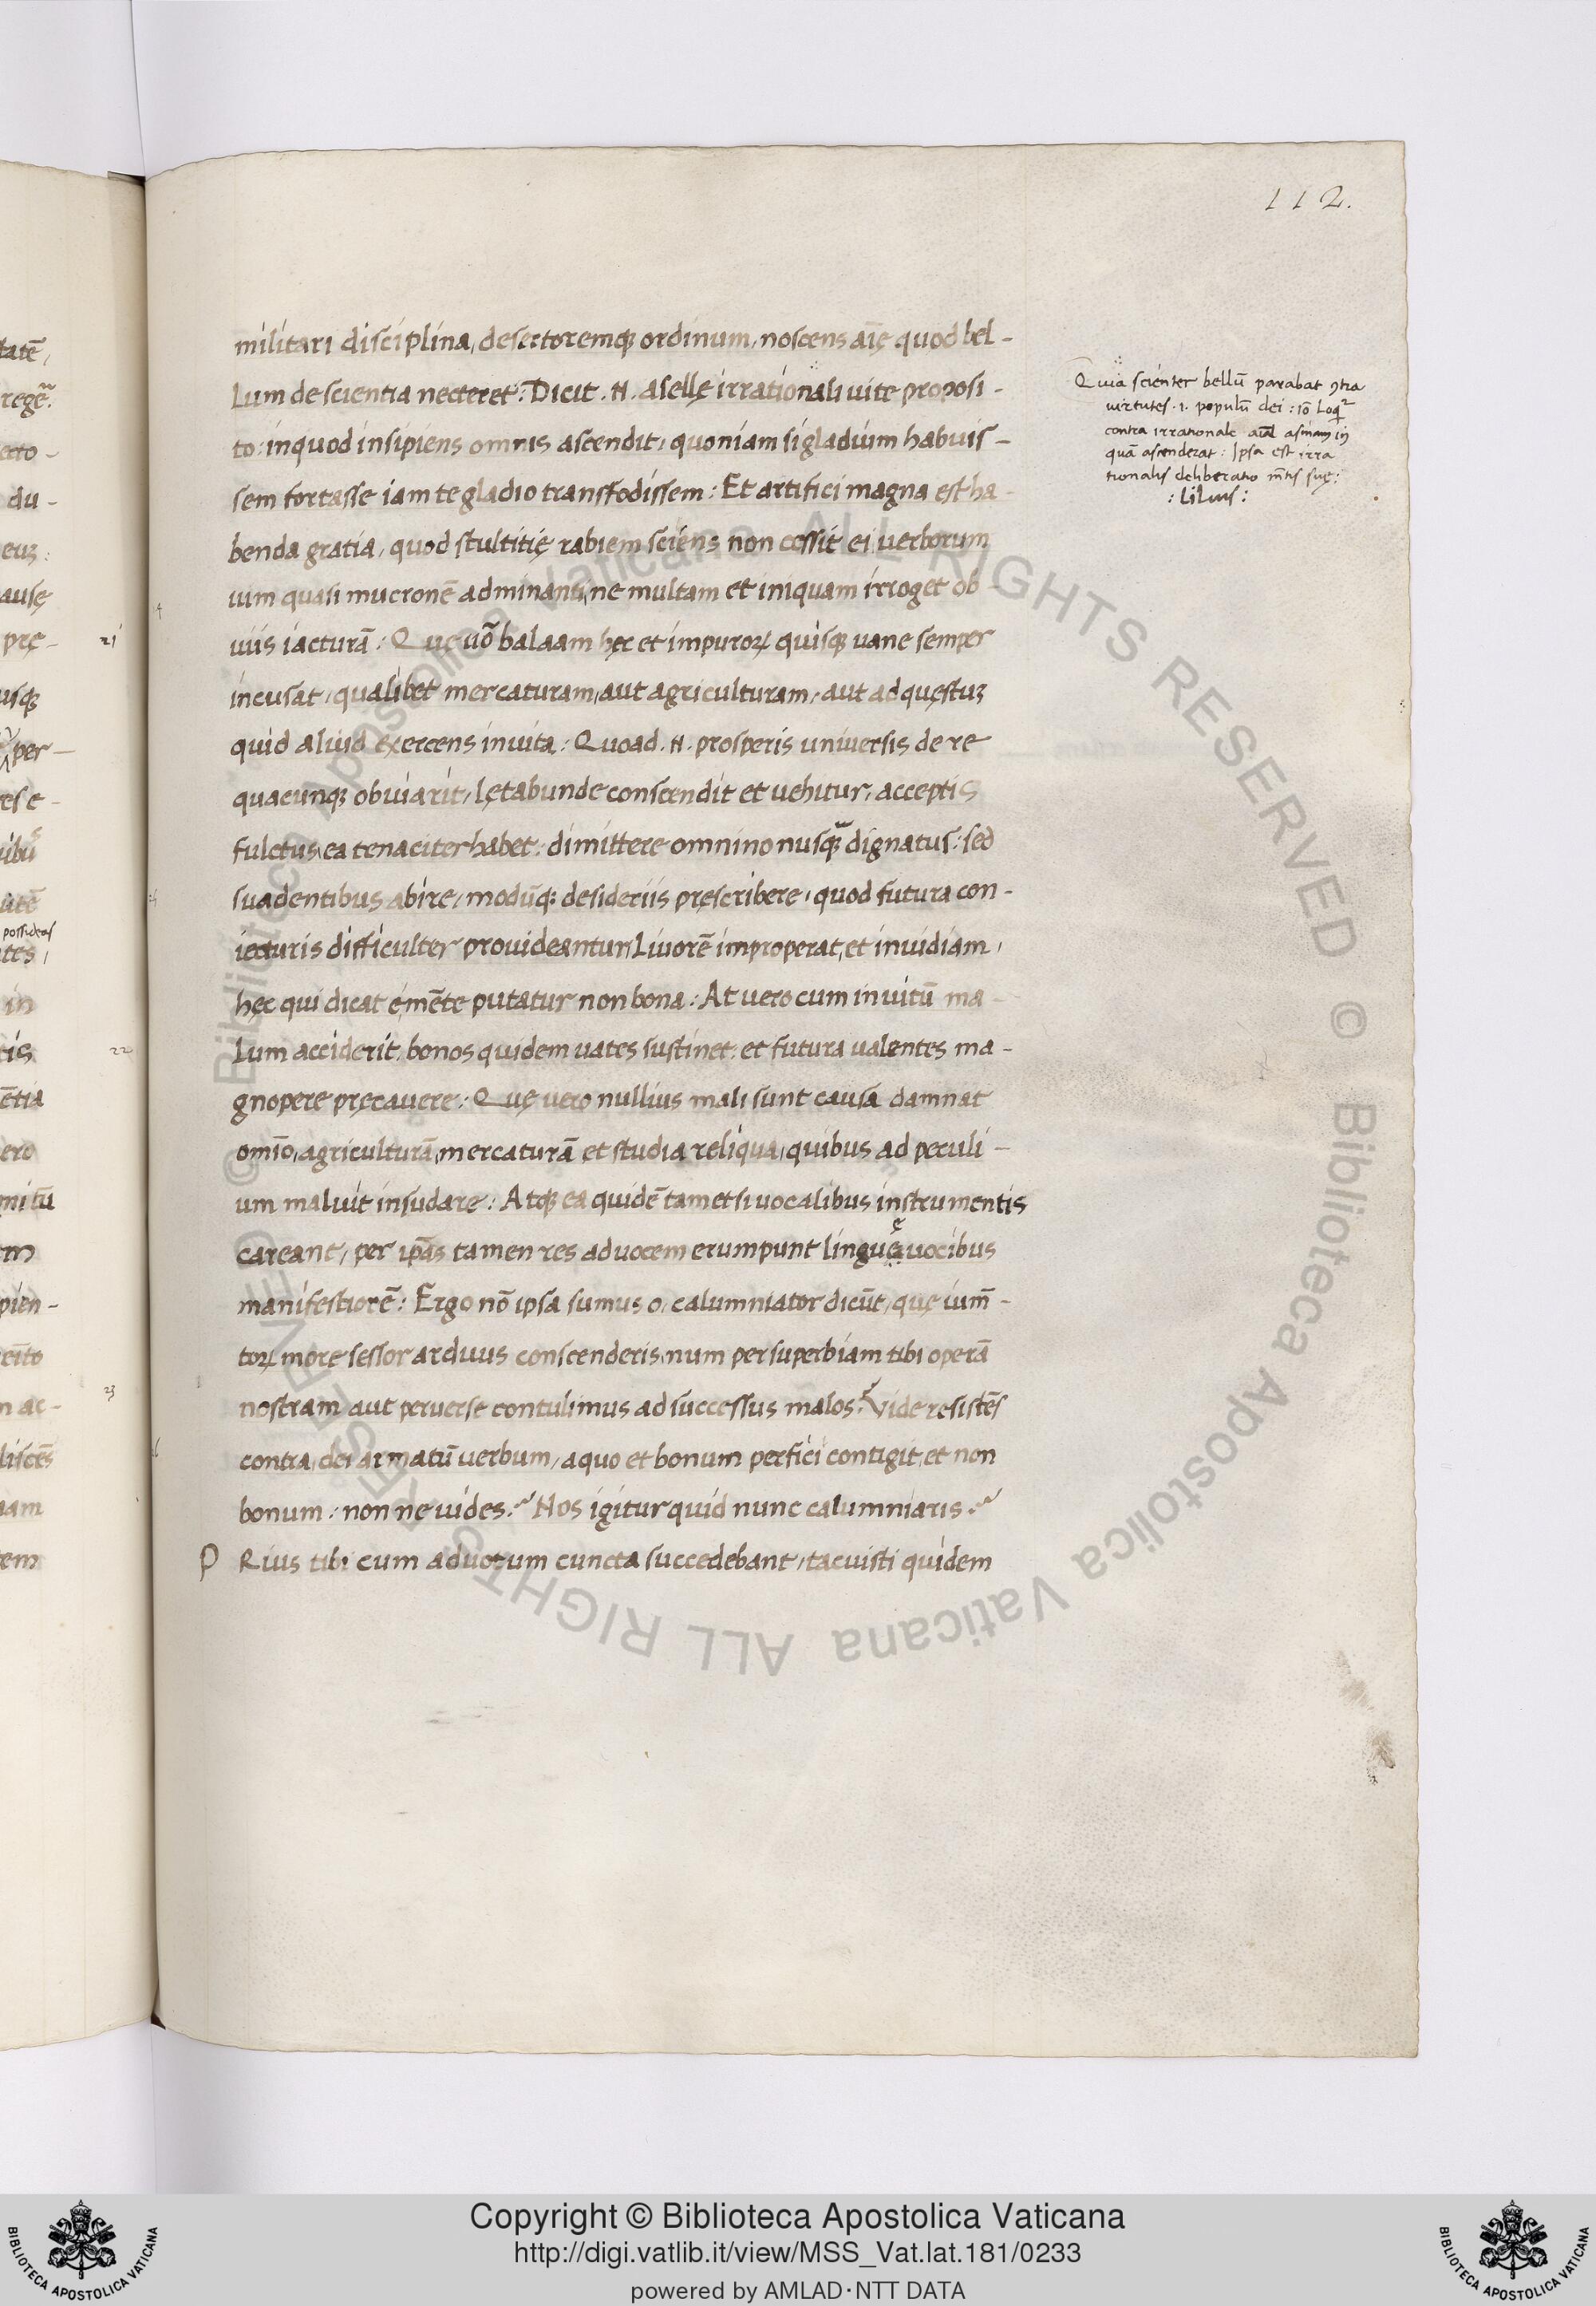 112.
militari disciplina, desertoremq; ordinum, noscens aīę quod bel-
lum de scientia necteret: Dicit .N. asellę irrationali uite proposi-
to: in quod insipiens omnis ascendit, quoniam si gladium habuis-
sem fortasse iam te gladio transfodissem: Et artifici magna est ha-
benda gratia, quod stultitię rabiem sciens non cessit ei uerborum
uim quasi mucronē adminanti, ne multam et iniquam irroget ob-
uiis iacturā: Quę uō balaam hęc et impuroꝝ quisq; uane semper
incusat, qualibet mercaturam, aut agriculturam, aut ad quęstuꝫ
quid aliud exercens in uita: Quoad .N. prosperis universis de re
quacunq; obuiarit, lętabunde conscendit et uehitur, acceptis
fulctus, ea tenaciter habet: dimittere omnino nusq̄ dignatus: sed
suadentibus abire, modūq; desideriis pręscribere, quod futura con-
iecturis difficulter prouideantur, Liuorē improperat, et inuidiam,
hęc qui dicat é mēte putatur non bona: At uero cum in uitū ma-
lum acciderit, bonos quidem uates sustinet, et futura ualentes ma-
gnopere pręcauere: Quę uero nullius mali sunt causa damnat
omīo, agriculturā, mercaturā et studia reliqua, quibus ad peculi-
um maluit insudare: Atq; ea quidē tametsi uocalibus instrumentis
careant, per ip̄as tamen res ad uocem erumpunt linguę uocibus
manifestiorē: Ergo nō ipsa sumus o, calumniator dicūt, quę ium̄-
toꝝ more sessor arduus conscenderis, num per superbiam tibi operā
nostram aut peruerse contulimus ad successus malos? Vide resistēs
contra, dei armatū uerbum, a quo et bonum perfici contigit, et non
bonum: non ne uides? Nos igitur quid nunc calumniaris?
P Rius tibi cum ad uotum cuncta succedebant, tacuisti quidem
Quia scienter bellū parabat ꝯtra
uirtutes .i. populū dei: iō loqr̄
contra irrationale aīal asinam in
quā ascenderat: Ipsa est irra
tionalis deliberatio m̄tis suę:
: Lilius :
21
22
23
Copyright © Biblioteca Apostolica Vaticana
http://digi.vatlib.it/view/MSS_Vat.lat.181/0233
powered by AMLAD·NTT DATA
BIBLIOTECA APOSTOLICA VATICANA
BIBLIOTECA APOSTOLICA VATICANA